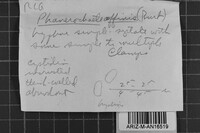 RLG
Phanerochaete affinis (Burt)
hyphae simple septate with
some single to multiple
clamps
cystidia
thick-walled
abundant
ARIZ-M-AN16519